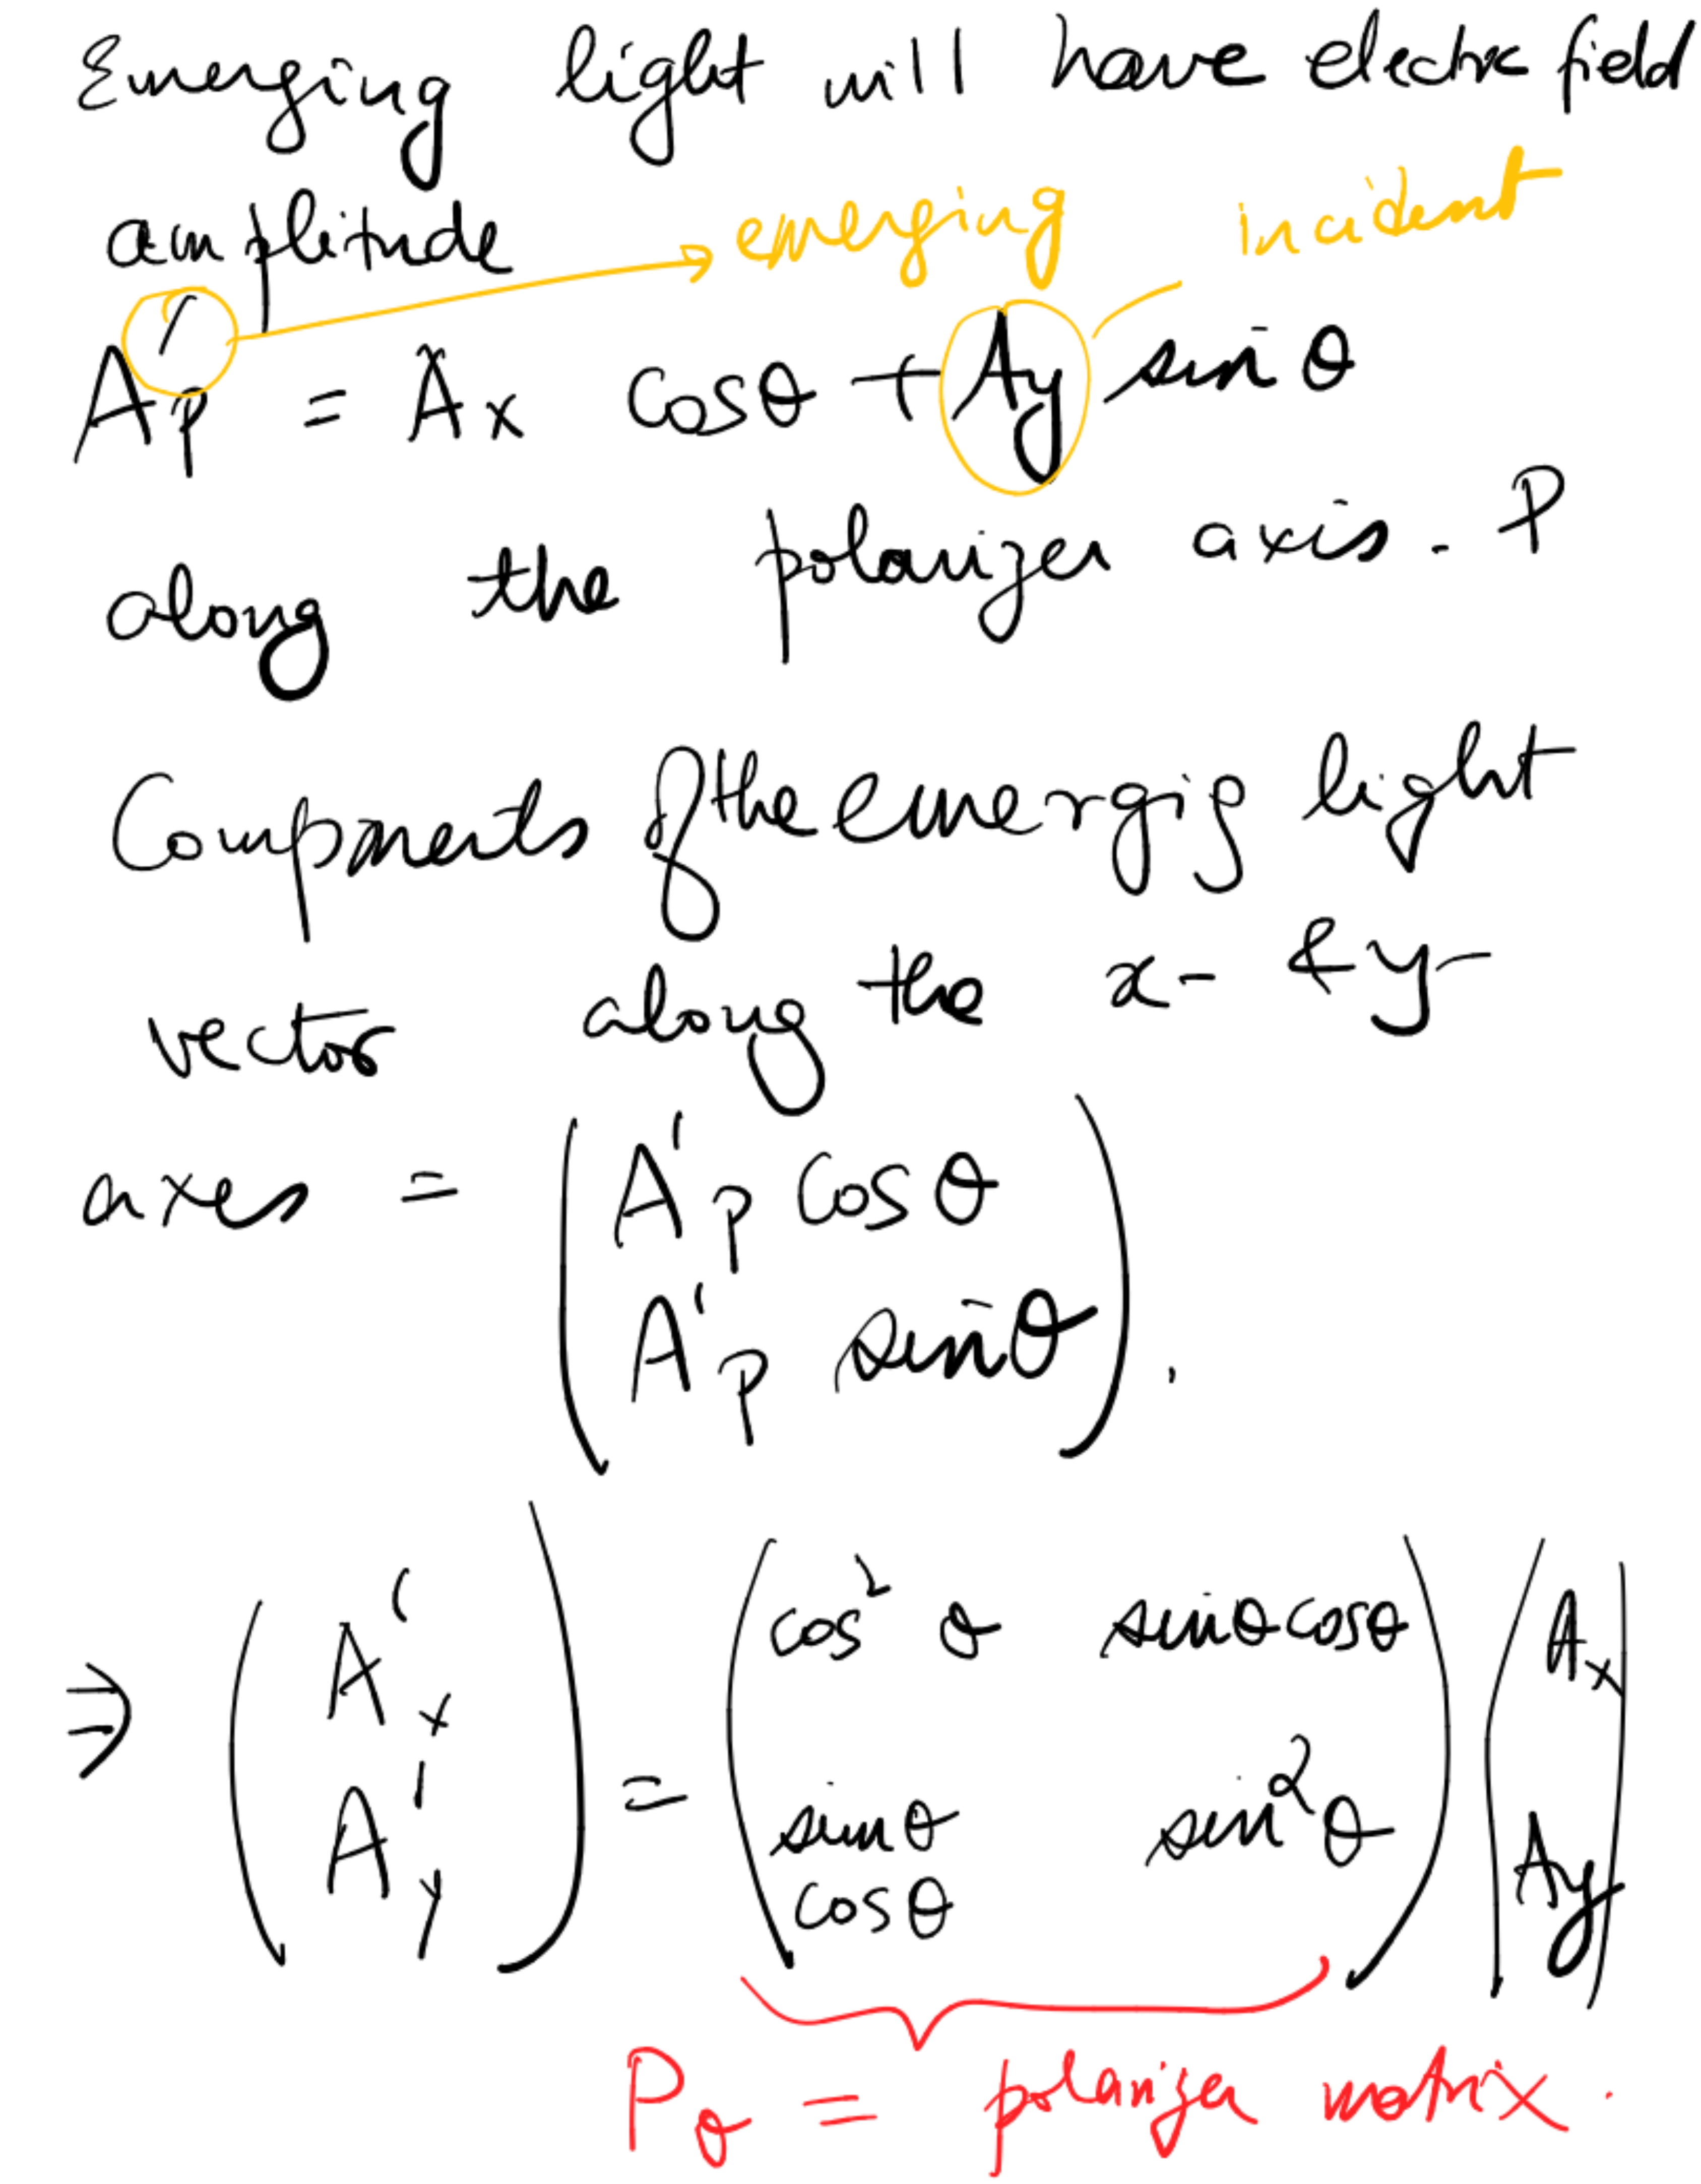 Emerging light will have electric field
amplitude → emerging incident
A'p = Ax cosθ + Ay sinθ
along the polarizer axis. P
Components of the emergig light
vector along the x- & y-
axes = (A'p cosθ
A'p sinθ).
⇒ (A'x A'y) = (cos²θ sinθcosθ sinθcosθ sin²θ) (Ax Ay)
Pθ = polarizer matrix.